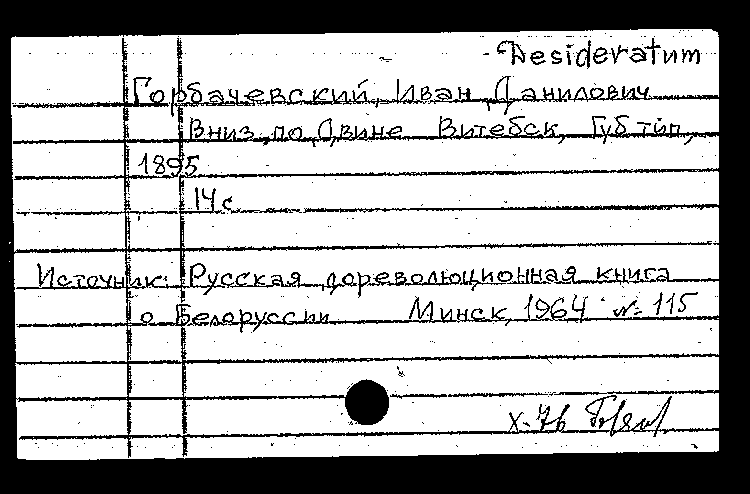 Desideratum
Горбачевский, Иван Данилович
Вниз по Двине Витебск, Губ тип,
1895
14 с
Источник: Русская дореволюционная книга
о Белоруссии Минск, 1964 № 115
X-76